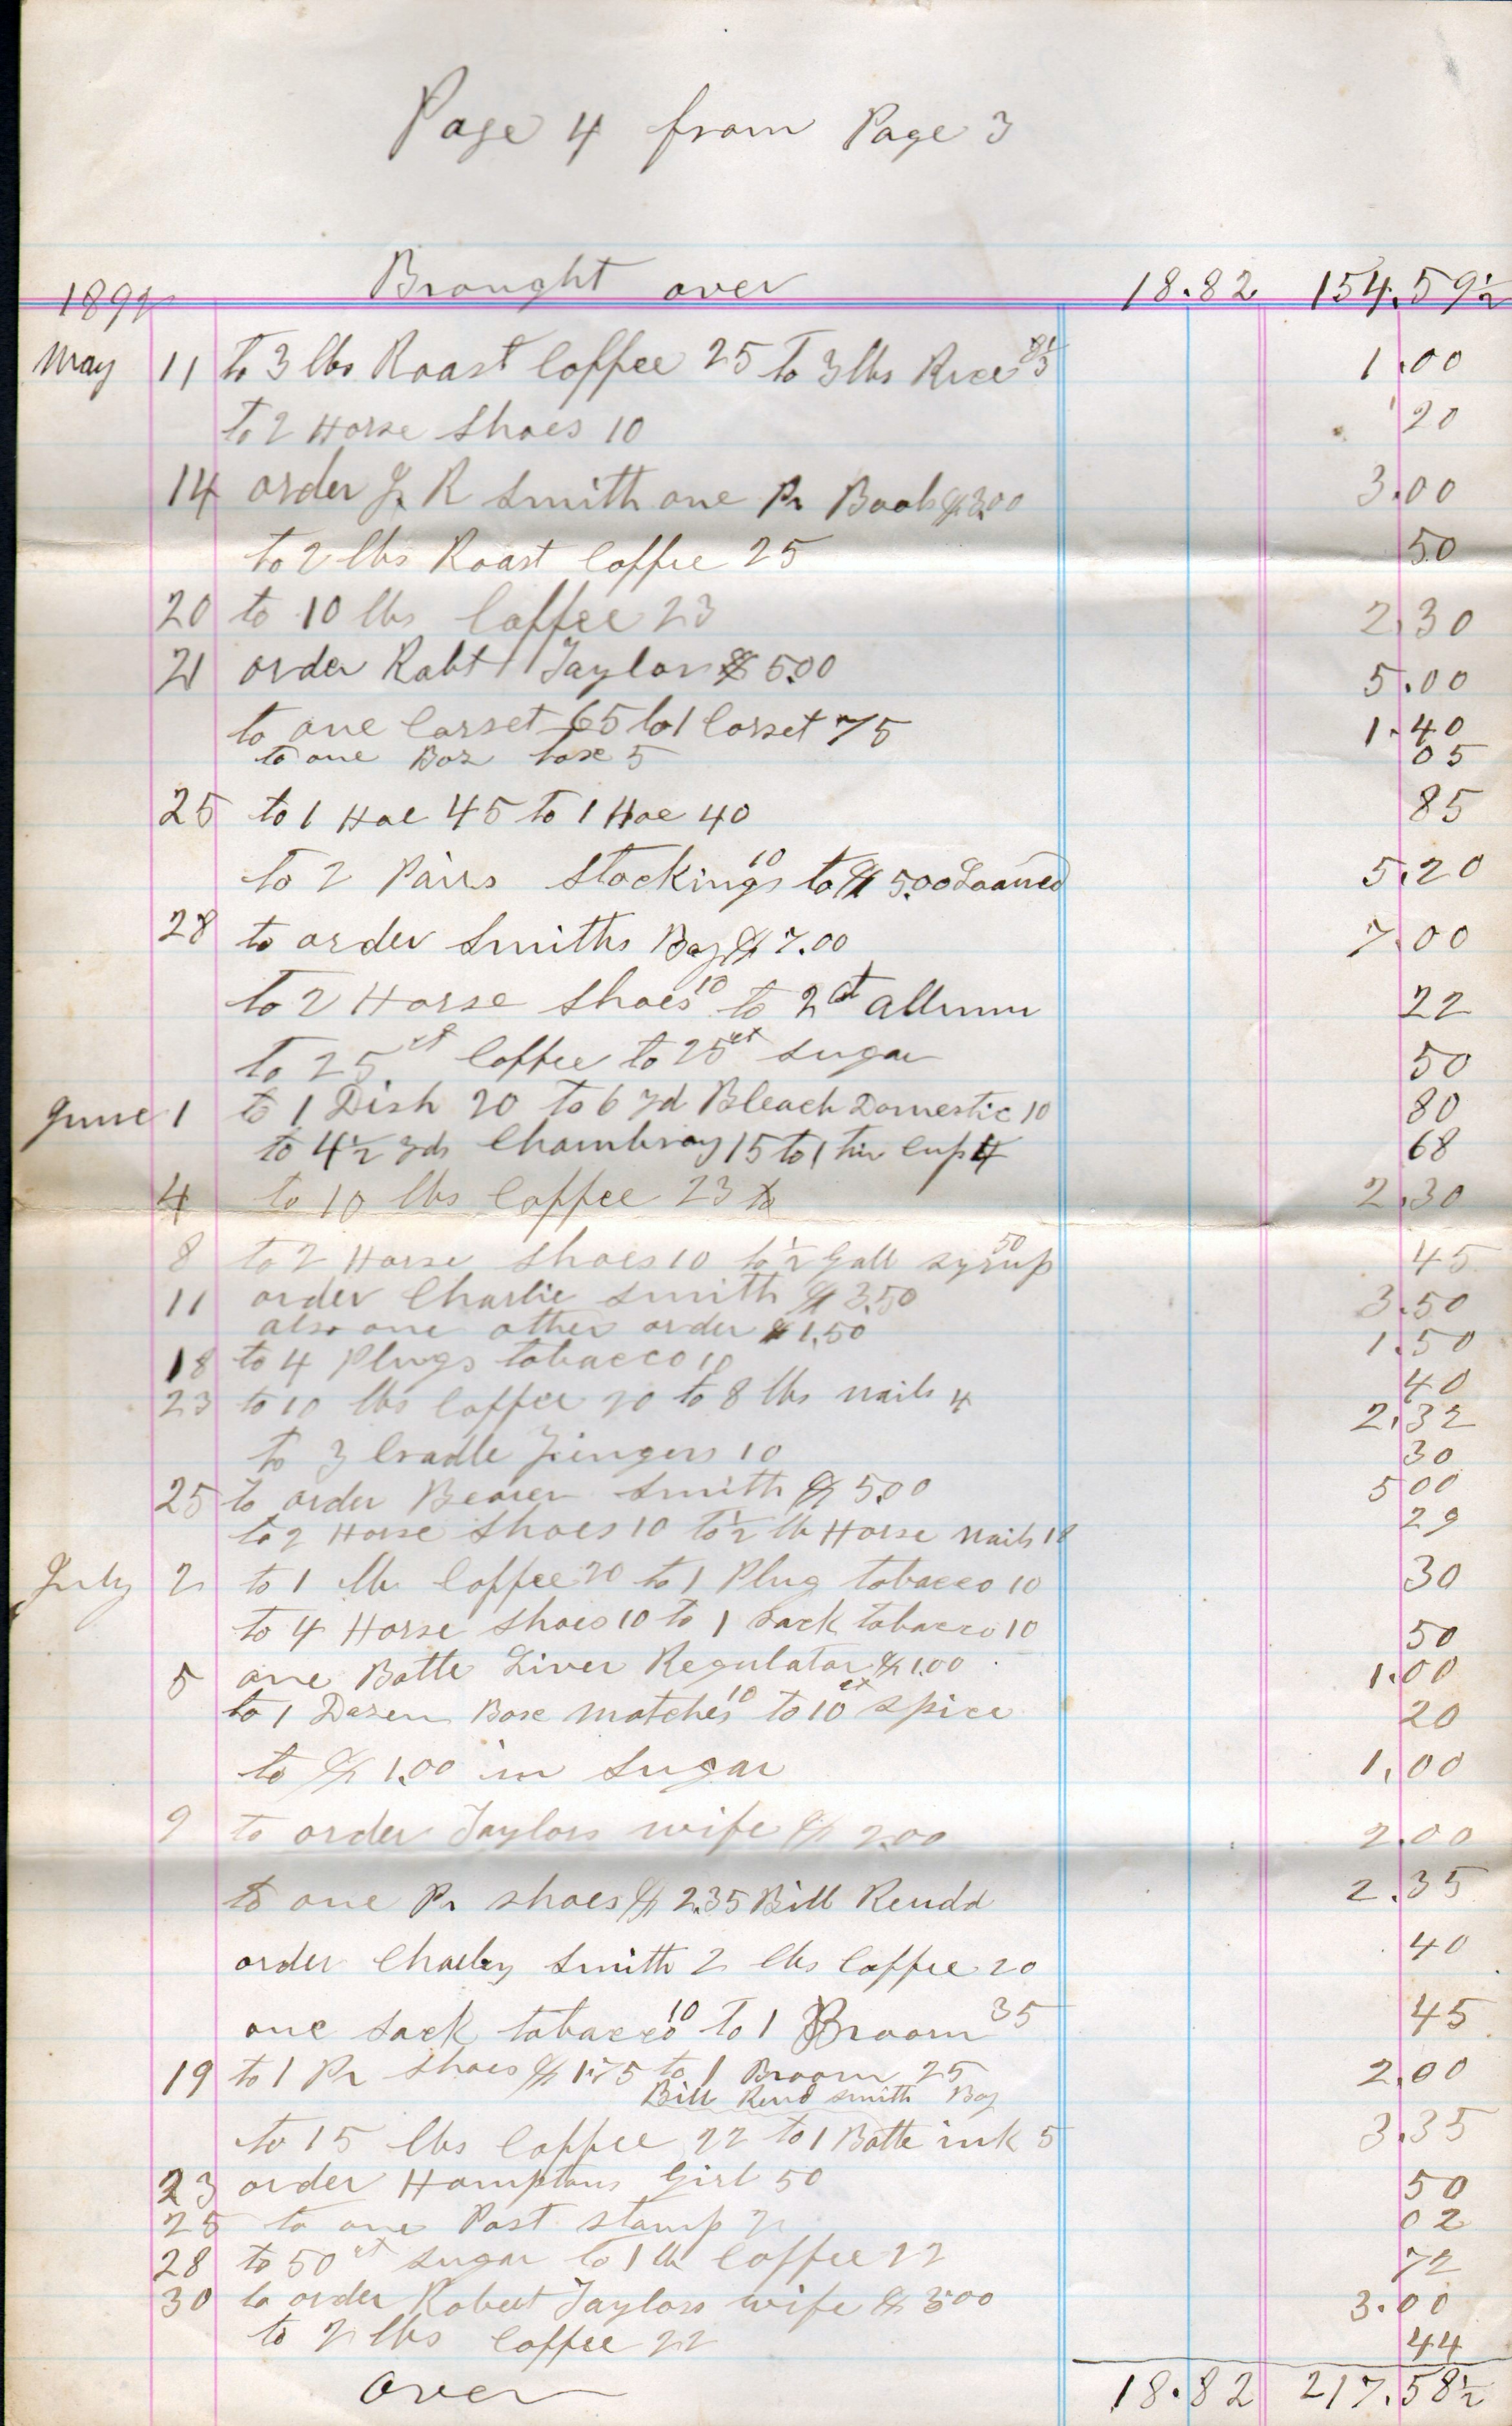 Page 4 from Page 3
Brought over 18.82 154.59½
1892
May 11 to 3 lbs Roast Coffee 25 to 3 lbs Rice 8⅓ 1.00
to 2 Horse Shoes 10 20
14 order J. R Smith one Pr Boots $3.00 3.00
to 2 lbs Roast Coffee 25 50
20 to 10 lbs Coffee 23 2.30
21 order Robt Taylor $5.00 5.00
to one Corset 65 to 1 Corset 75 1.40
to one Box 5 05
25 to 1 Hoe 45 to 1 Hoe 40 85
to 2 Pairs Stockings 10 to $5.00 Loaned 5.20
28 to order Smiths Boy $7.00 7.00
to 2 Horse Shoes 10 to 2 ct allum 22
to 25 ct Coffee to 25 ct Sugar 50
June 1 to 1 Dish 20 to 6 yd Bleach Domestic 10 80
to 4½ yds Chambray 15 to 1 tin Cup 4 68
4 to 10 lbs Coffee 23 to 2.30
8 to 2 Horse Shoes 10 to ½ Gall Syrup 50 45
11 order Charlie Smith $3.50 3.50
also one other order $1.50 1.50
18 to 4 Plugs tobacco 10 40
23 to 10 lbs Coffee 20 to 8 lbs nails 4 2.32
to 3 Cradle Fingers 10 30
25 to order Bearer Smith $5.00 5 00
to 2 Horse Shoes 10 to ½ lb Horse nails 18 29
July 2 to 1 lb Coffee 20 to 1 Plug tobacco 10 30
to 4 Horse Shoes 10 to 1 Sack tobacco 10 50
5 one Botte Liver Regulator $1.00 1.00
to 1 Dozen Boxe matches 10 to 10 ct Spice 20
to $1.00 in Sugar 1.00
9 to order Taylors wife $2.00 2.00
to one Pr Shoes $2.35 Bill Rendd 2.35
order Charley Smith 2 lbs Coffee 20 40
one Sack tobacco 10 to 1 Broom 35 45
19 to 1 Pr Shoes $1.75 to 1 Broom 25 2.00
Bill Rend Smith Boy
to 15 lbs Coffee 22 to 1 Botte ink 5 3.35
23 order Hamptons Girl 50 50
25 to one Post stamp 2 02
28 to 50 ct Sugar to 1 lb Coffee 22 72
30 to order Robert Taylors wife $3.00 3.00
to 2 lbs Coffee 22 44
Over 18.82 217.58½